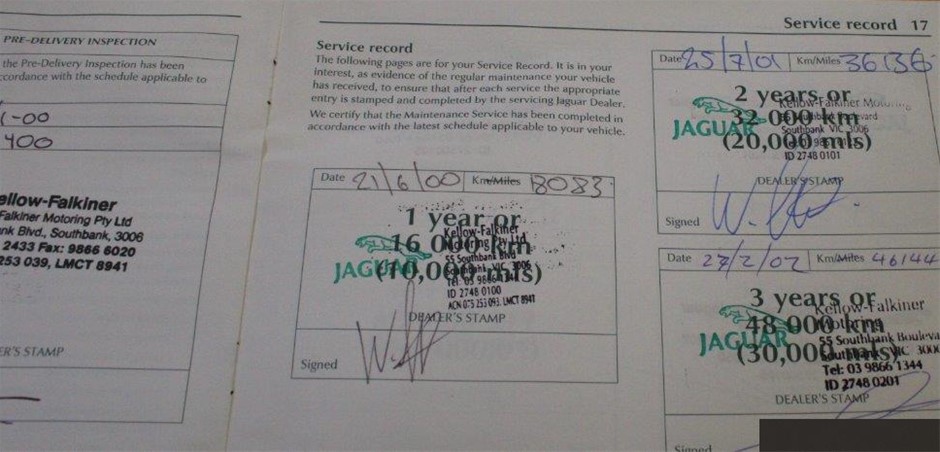 PRE-DELIVERY INSPECTION
the Pre-Delivery Inspection has been
ccordance with the schedule applicable to
-00
400
ellow-Falkiner
Falkiner Motoring Pty Ltd
nk Blvd., Southbank, 3006
2433 Fax: 9866 6020
253 039, LMCT 8941
ER'S STAMP
Service record 17
Service record
The following pages are for your Service Record. It is in your
interest, as evidence of the regular maintenance your vehicle
has received, to ensure that after each service the appropriate
entry is stamped and completed by the servicing Jaguar Dealer.
We certify that the Maintenance Service has been completed in
accordance with the latest schedule applicable to your vehicle.
Date 21/6/00 Km/Miles 18083
1 year or
16,000 km
(10,000 mls)
JAGUAR
Kellow-Falkiner
Motoring Pty Ltd
55 Southbank Blvd
Southbank VIC 3006
Tel: 03 9866 1344
ID 2748 0100
ACN 075 253 093. LMCT 8941
DEALER'S STAMP
Signed
Date 25/7/01 Km/Miles 36136
2 years or
32,000 km
(20,000 mls)
JAGUAR
Kellow-Falkiner Motoring
55 Southbank Boulevard
Southbank VIC 3006
ID 2748 0101
DEALER'S STAMP
Signed
Date 27/2/02 Km/Miles 46144
3 years or
48,000 km
(30,000 mls)
JAGUAR
Kellow-Falkiner
Motoring
55 Southbank Bouleva
Southbank VIC 300
Tel: 03 9866 1344
ID 2748 0201
DEALER'S STAMP
Signed